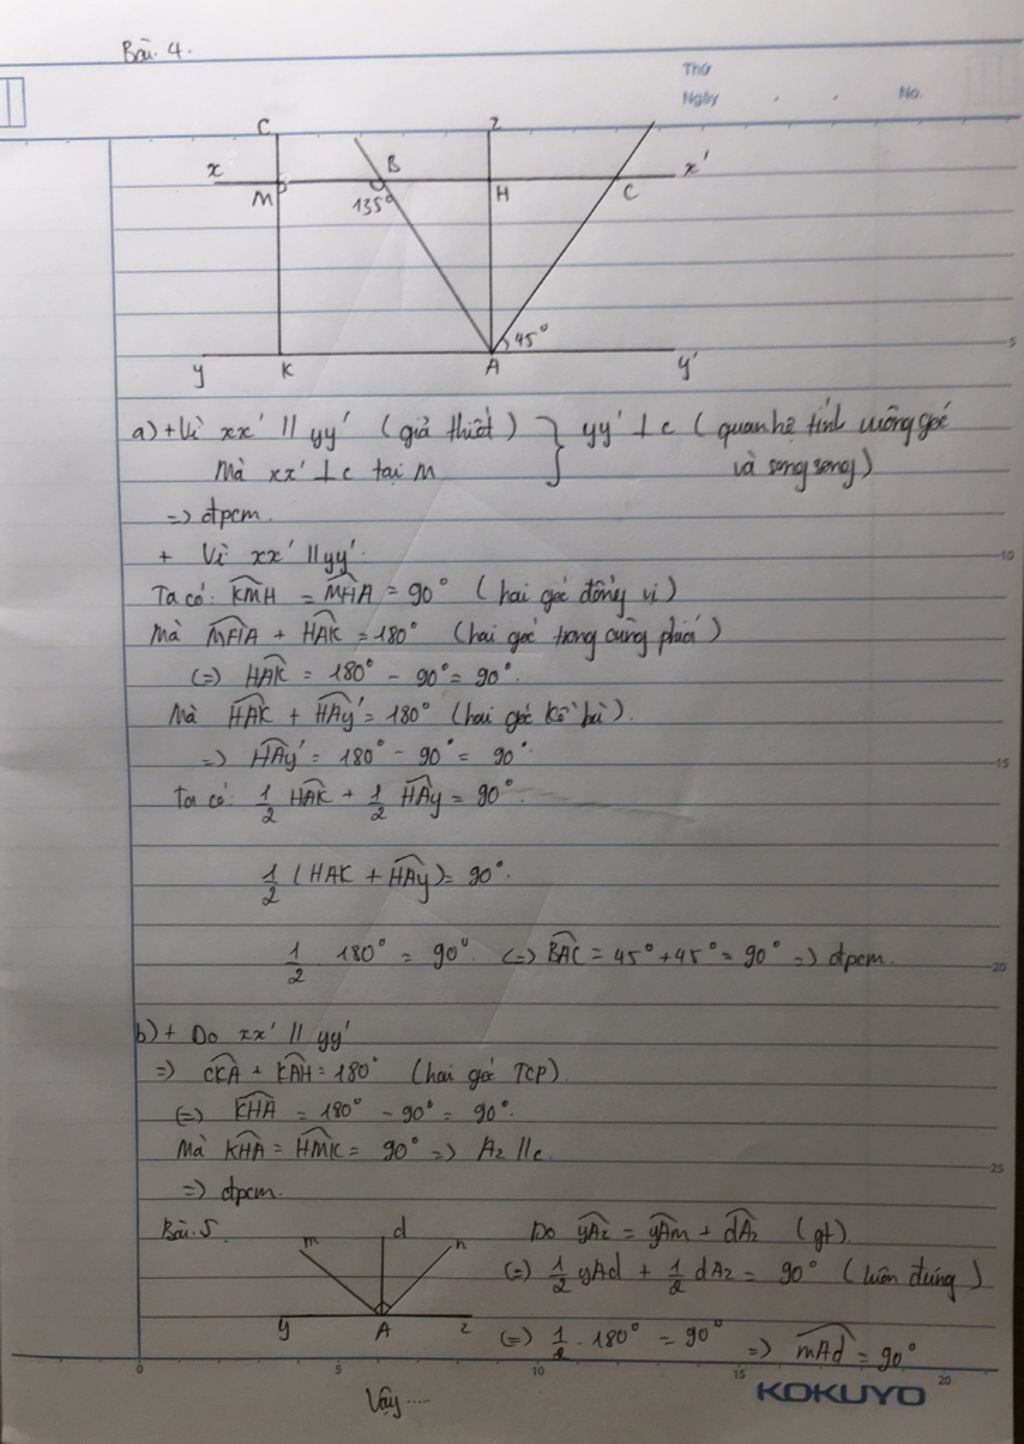 Bài 4.
Thứ
Ngày
No.
C z
x B x'
M 135° H C
45°
y K A y'
5
a) + Vì xx' // yy' (giả thiết) } yy' ⊥ c (quan hệ tính vuông góc
Mà xx' ⊥ c tại M và song song)
=> đpcm.
+ Vì xx' // yy':
10
Ta có: KMH = MHA = 90° (hai góc đồng vị)
Mà MHA + HAK = 180° (hai góc trong cùng phía)
(=) HAK = 180° - 90° = 90°.
Mà HAK + HAy' = 180° (hai góc kề bù).
=> HAy' = 180° - 90° = 90°.
15
Ta có: 1/2 HAK + 1/2 HAy = 90°.
1/2 (HAK + HAy) = 90°.
1/2 . 180° = 90° (=) BAC = 45° + 45° = 90° => đpcm.
20
b) + Do xx' // yy'
=> CKA + KAH = 180° (hai góc TCP)
(=) KHA = 180° - 90° = 90°.
Mà KHA = HMK = 90° => Az // c.
25
=> đpcm.
Bài 5. Do yAz = yAm + dAz (gt)
m d n
(=) 1/2 yAd + 1/2 dAz = 90° (luôn đúng)
y A z
(=) 1/2 . 180° = 90° => mAd = 90°
0 5 10 15 20
Vậy ....
KOKUYO